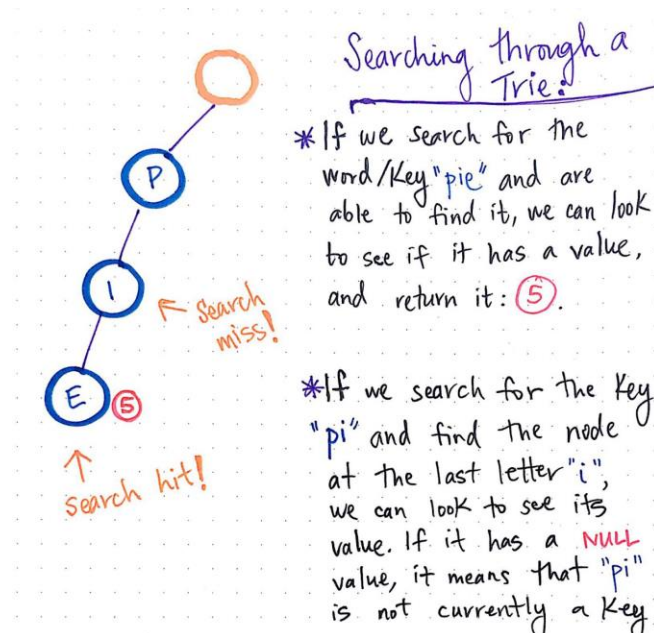 Searching through a
Trie:
*If we search for the
word/key "pie" and are
able to find it, we can look
to see if it has a value,
and return it: 5.
*If we search for the key
"pi" and find the node
at the last letter "i",
we can look to see its
value. If it has a NULL
value, it means that "pi"
is not currently a key
P
I
← search
miss!
E 5
↑
search hit!